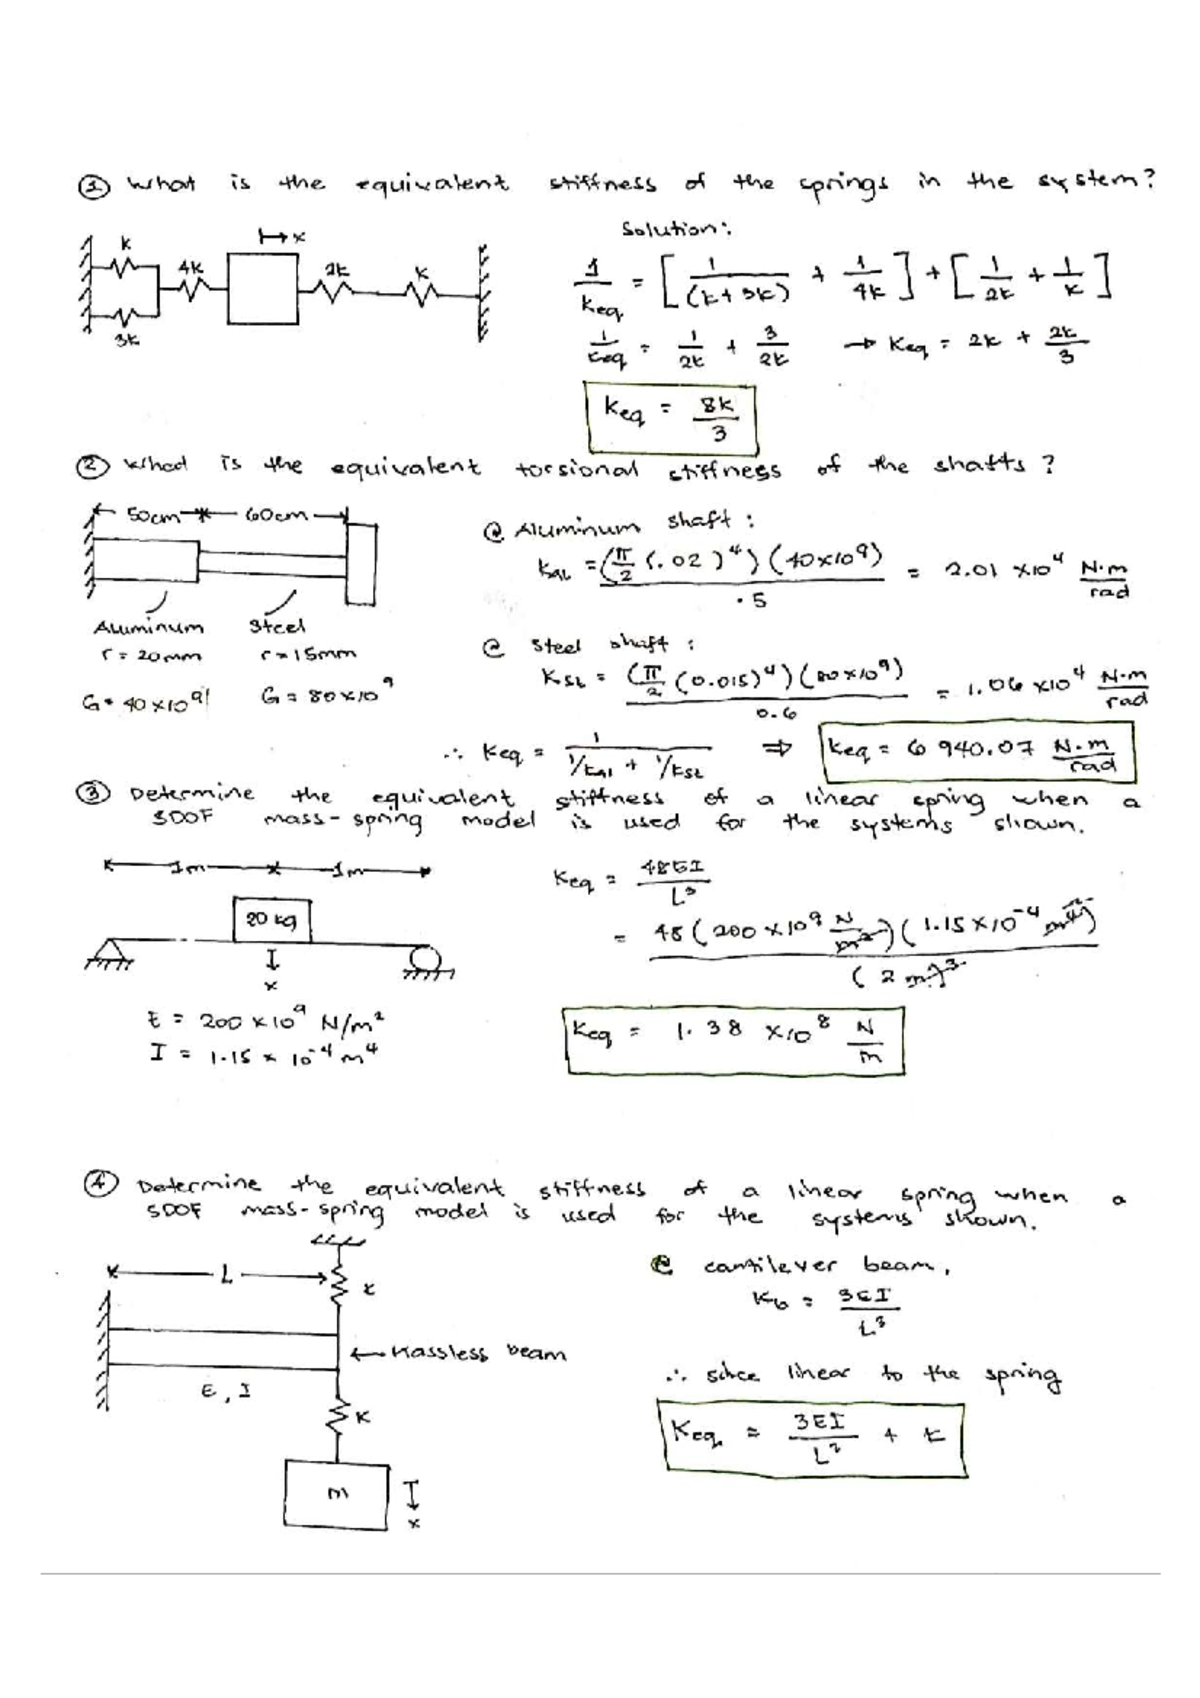 ① What is the equivalent stiffness of the springs in the system?
Solution:
k
4k
3k
x
2k
k
1/keq = [1/(k+3k) + 1/4k] + [1/2k + 1/k]
1/keq = 1/2k + 3/2k → keq = 2k + 2k/3
keq = 8k/3
② What is the equivalent torsional stiffness of the shafts?
50cm 60cm
Aluminum
r = 20mm
G = 40x10^9
Steel
r = 15mm
G = 80x10^9
@ Aluminum shaft:
KAL = (π/2 (.02)^4)(40x10^9)/.5 = 2.01 x10^4 N·m/rad
@ Steel shaft:
KSt = (π/2 (0.015)^4)(80x10^9)/0.6 = 1.06 x10^4 N·m/rad
∴ Keq = 1/(1/KAl + 1/KSt) ⇒ Keq = 6 940.07 N·m/rad
③ Determine the equivalent stiffness of a linear spring when a
SDOF mass-spring model is used for the systems shown.
1m 1m
20 kg
x
E = 200 x10^9 N/m²
I = 1.15 x 10^-4 m^4
Keq = 48EI/L³
= 48 (200 x10^9 N/m²)(1.15 x10^-4 m^4)/(2 m)³
Keq = 1.38 x10^8 N/m
④ Determine the equivalent stiffness of a linear spring when a
SDOF mass-spring model is used for the systems shown.
L
k
← Massless beam
E, I
K
m
x
@ cantilever beam,
Kb = 3EI/L³
∴ since linear to the spring
Keq = 3EI/L² + k